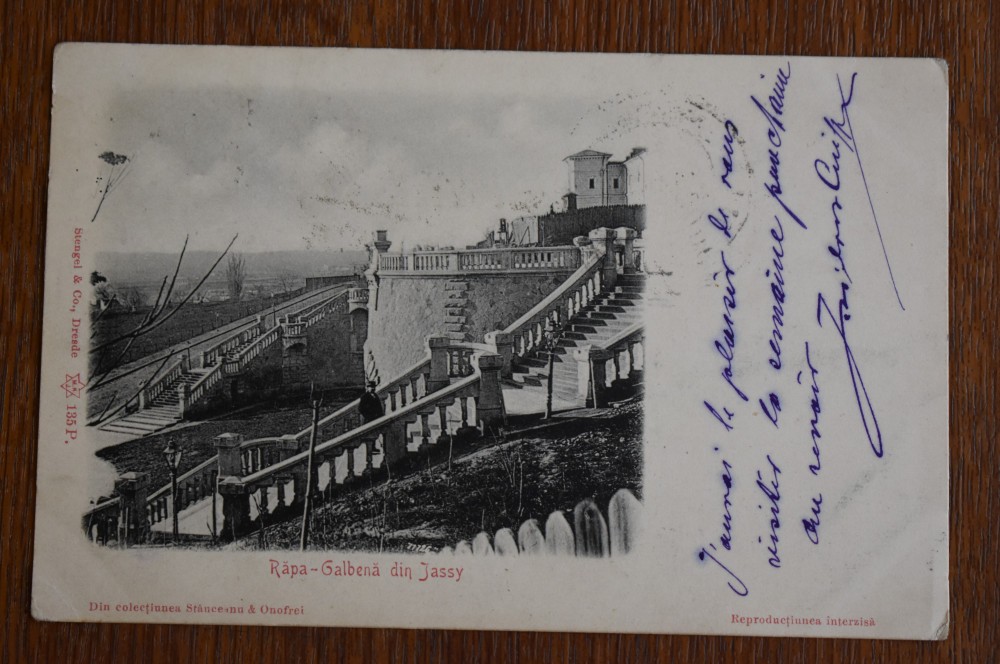 Stengel & Co., Dresde 135 P.
Râpa-Galbenă din Jassy
Din colecțiunea Stănceanu & Onofrei
Reproducțiunea interzisă
J'aurai le plaisir de vous
visiter la semaine prochaine
au revoir